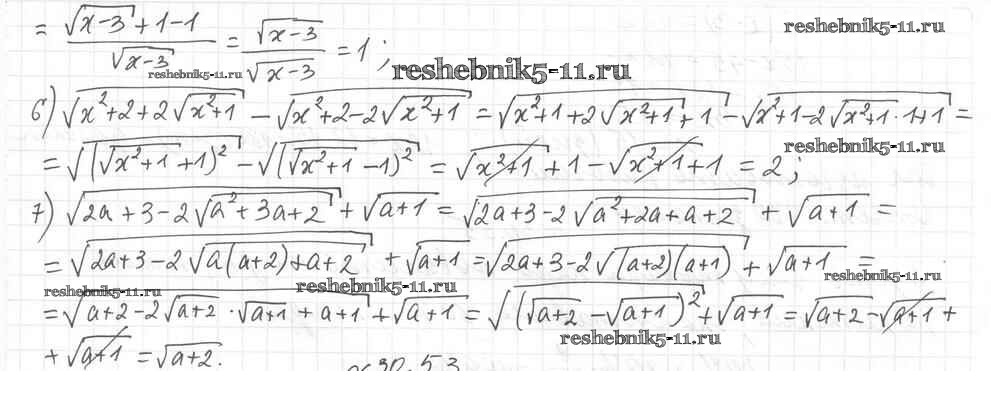 = (√(x-3) + 1 - 1)/√(x-3) = √(x-3)/√(x-3) = 1;
reshebnik5-11.ru
reshebnik5-11.ru
reshebnik5-11.ru
6) √(x²+2+2√(x²+1)) - √(x²+2-2√(x²+1)) = √(x²+1+2√(x²+1)+1) - √(x²+1-2√(x²+1)·1+1) =
= √((√(x²+1)+1)²) - √((√(x²+1)-1)²) = √(x²+1)+1-√(x²+1)+1 = 2;
reshebnik5-11.ru
7) √(2a+3-2√(a²+3a+2)) + √(a+1) = √(2a+3-2√(a²+2a+a+2)) + √(a+1) =
= √(2a+3-2√(a(a+2)+a+2)) + √(a+1) = √(2a+3-2√((a+2)(a+1))) + √(a+1) =
reshebnik5-11.ru
reshebnik5-11.ru
reshebnik5-11.ru
= √(a+2-2√(a+2)·√(a+1)+a+1) + √(a+1) = √((√(a+2)-√(a+1))²) + √(a+1) = √(a+2)-√(a+1) +
reshebnik5-11.ru
+ √(a+1) = √(a+2).